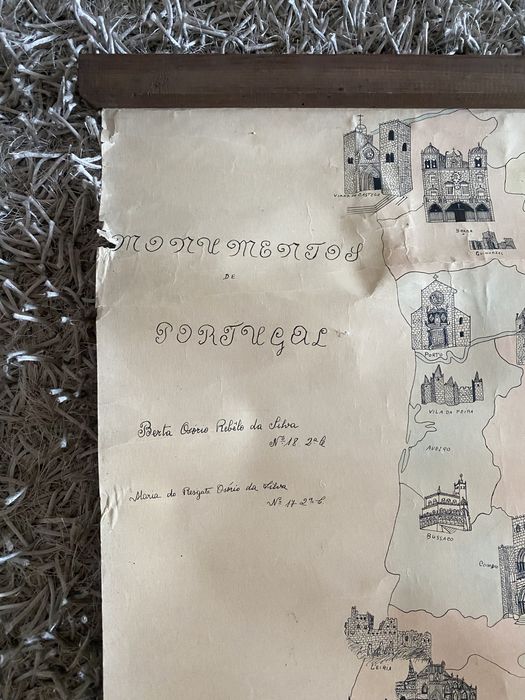 MONUMENTOS
DE
PORTUGAL
Berta Osorio Rebêlo da Silva
Nº 18 2ª b
Maria do Resgate Osório da Silva
Nº 17 2ª b.
VIANA DO CASTELO
BRAGA
GUIMARÃES
PORTO
VILA DA FEIRA
AVEIRO
BUSSACO
COIMB
LEIRIA